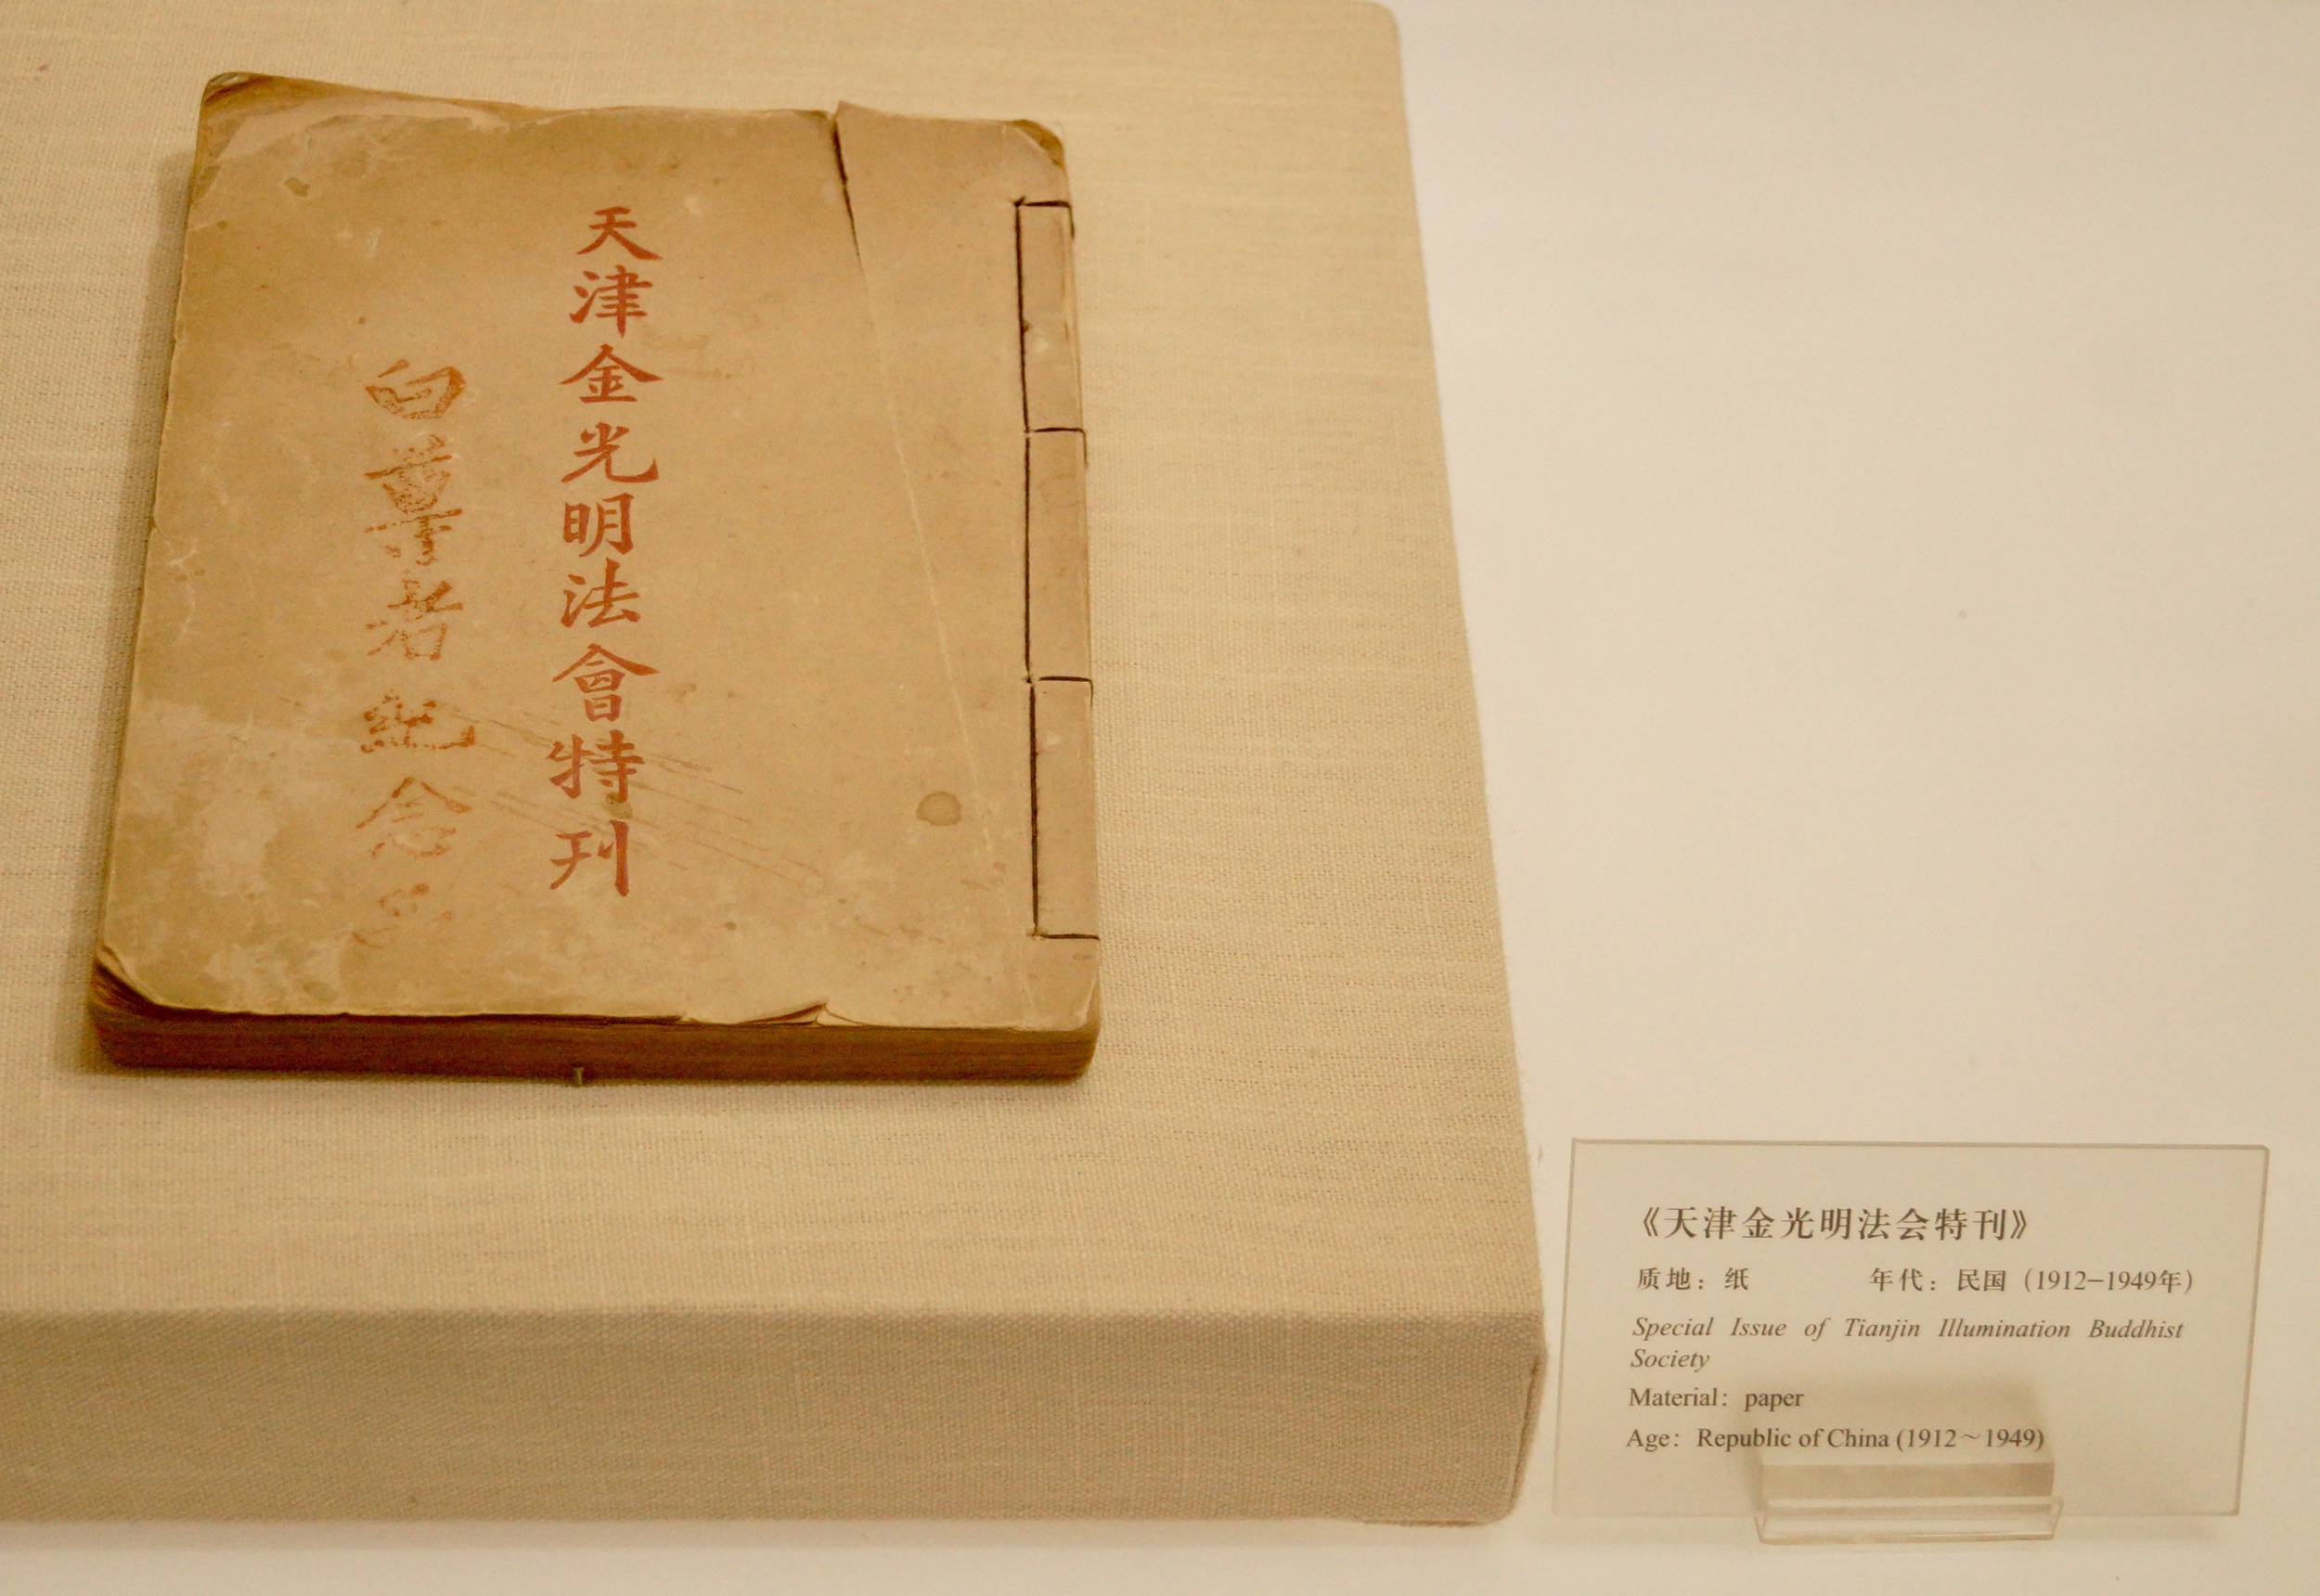 天津金光明法會特刊
白尊者紀念
《天津金光明法会特刊》
质地：纸 年代：民国（1912—1949年）
Special Issue of Tianjin Illumination Buddhist
Society
Material: paper
Age: Republic of China (1912～1949)